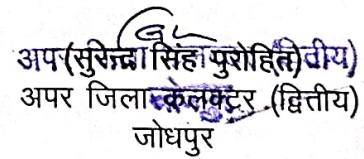 (सुरेन्द्र सिंह पुरोहित)
अपर जिला कलक्टर (द्वितीय)
जोधपुर